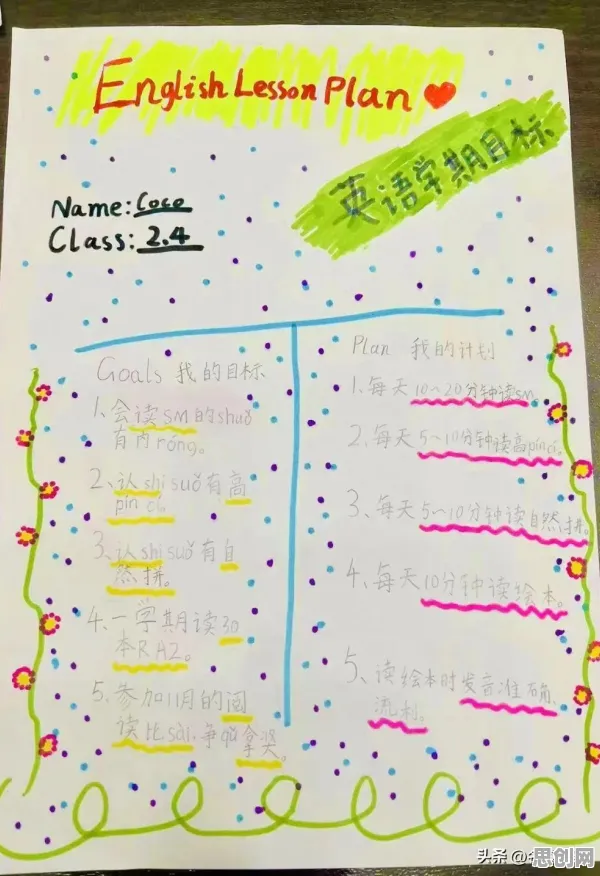 English Lesson Plan
英语学期目标
Name: Coco
Class: 2.4
Goals 我的目标
1、会读sm的shuǒ
有内róng。
2、认shi suǒ有高
pín cí。
3、认shi suǒ有自
然拼。
4、一学期读30
本RAZ。
5、参加11月的阅
读比sài.争取拿奖。
Plan 我的计划
1、每天10~20分钟读sm。
2、每天5~10分钟读高pín cí。
3、每天5~10分钟读自然拼。
4、每天10分钟读绘本。
5、读绘本时发音准确、
流利。
头条
思创网